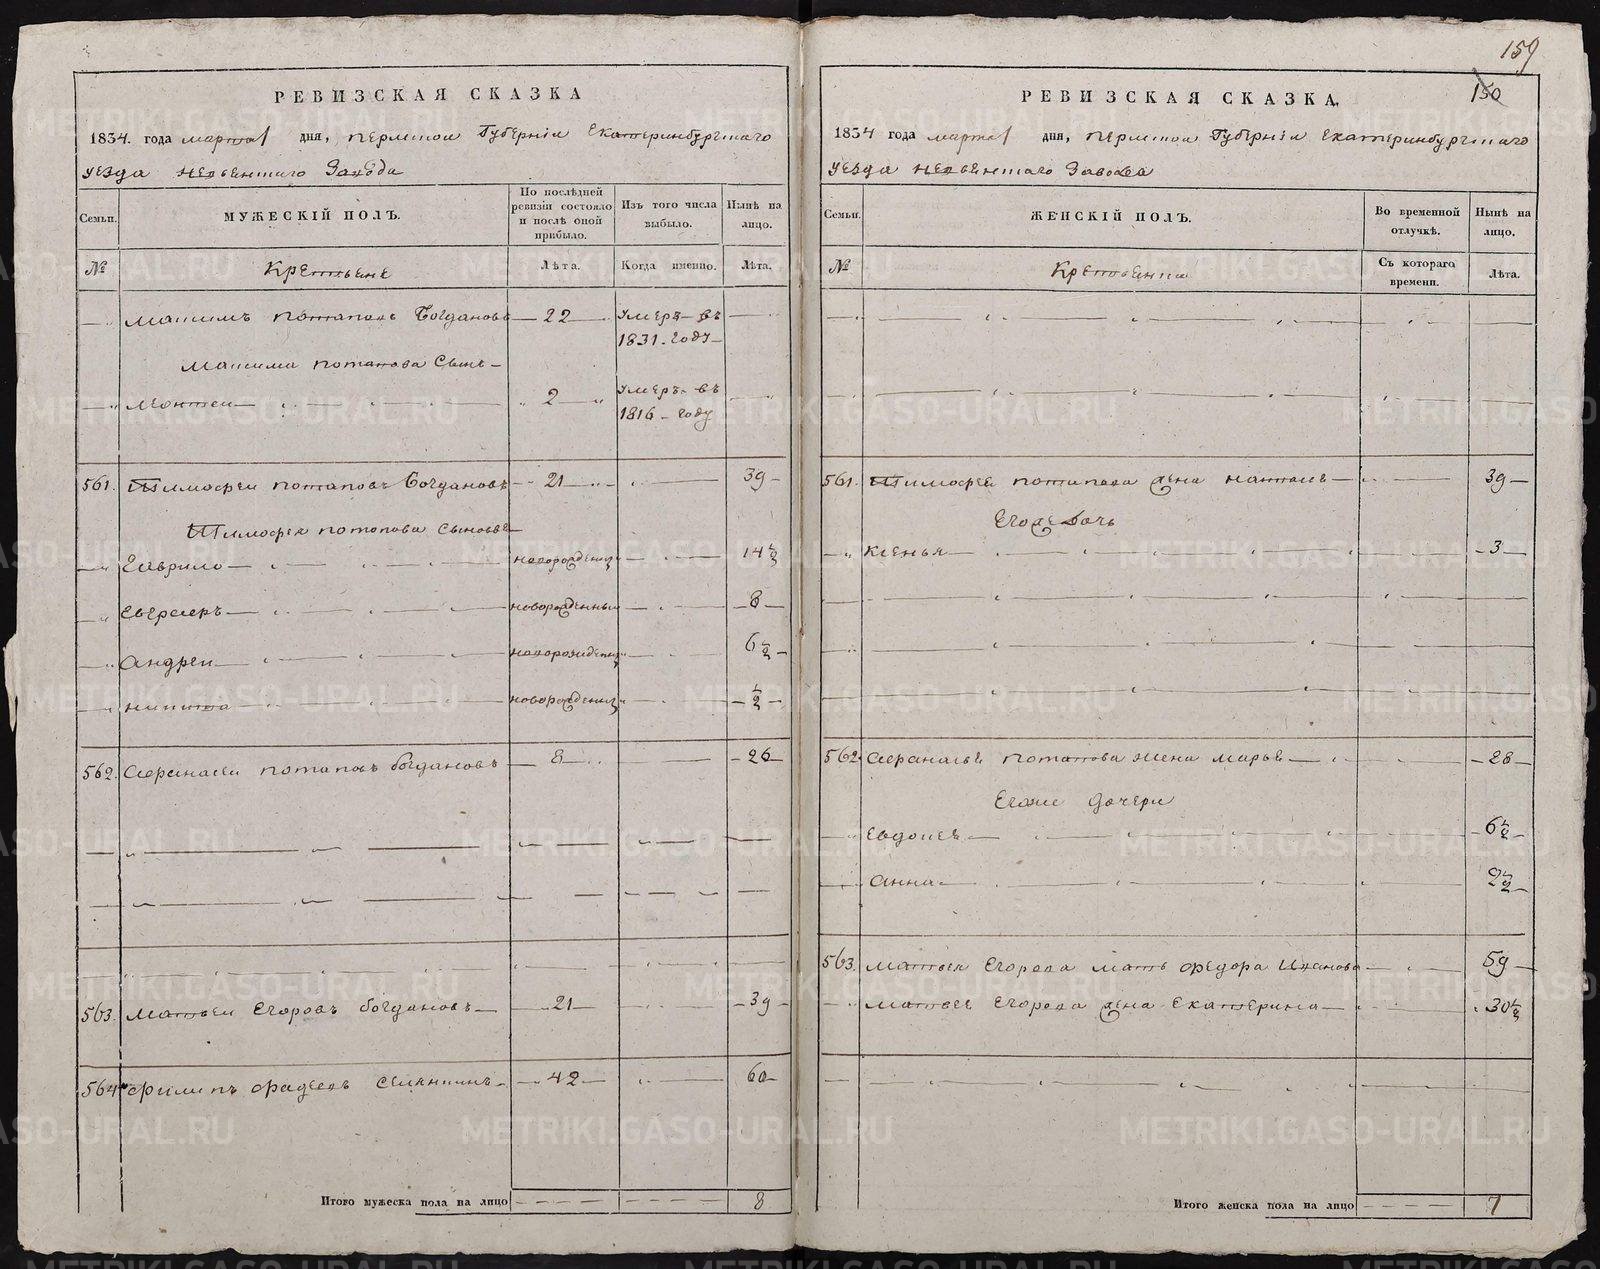 159
150
РЕВИЗСКАЯ СКАЗКА
1834. года марта 1 дня, пермской Губерніи Екатеринбургскаго
уезда невьенскаго Завода
Семьи.
МУЖЕСКІЙ ПОЛЪ.
По послѣдней ревизіи состояло и послѣ оной прибыло.
Изъ того числа выбыло.
Нынѣ на лицо.
№
Крестьяне
Лѣта.
Когда именно.
Лѣта.
Максимъ потаповъ Богдановъ 22 умеръ въ
1831 году
Максима потапова Сынъ
2 умеръ въ
1816 году
561. Тимофеи потаповъ Богдановъ 21 39
Тимофея потапова сыновье
Гаврило новорожденны 14 ½
новорожденны 8
Андреи новорожденны 6 ½
никита новорожденны ½
562. Афанасеи потаповъ богдановъ 8 26
563. Матвеи Егоровъ богдановъ 21 39
564. филипъ фадеевъ 42 60
Итого мужеска пола на лицо 8
РЕВИЗСКАЯ СКАЗКА.
1834 года марта 1 дня, пермской Губерніи екатеринбургскаго
уезда невьенскаго Завода
Семьи.
ЖЕНСКІЙ ПОЛЪ.
Во временной отлучкѣ.
Нынѣ на лицо.
№
Съ котораго времени.
Лѣта.
561. Тимофея потапова жена 39
Егоже дочь
Ксенья 3
562. Афанасья потапова жена марья 26
Егоже дочери
6 ½
Анна 2 ½
563. Матвея Егорова мать федора Иванова 59
Матвея Егорова жена Екатерина 30 ½
Итого женска пола на лицо 7
METRIKI.GASO-URAL.RU